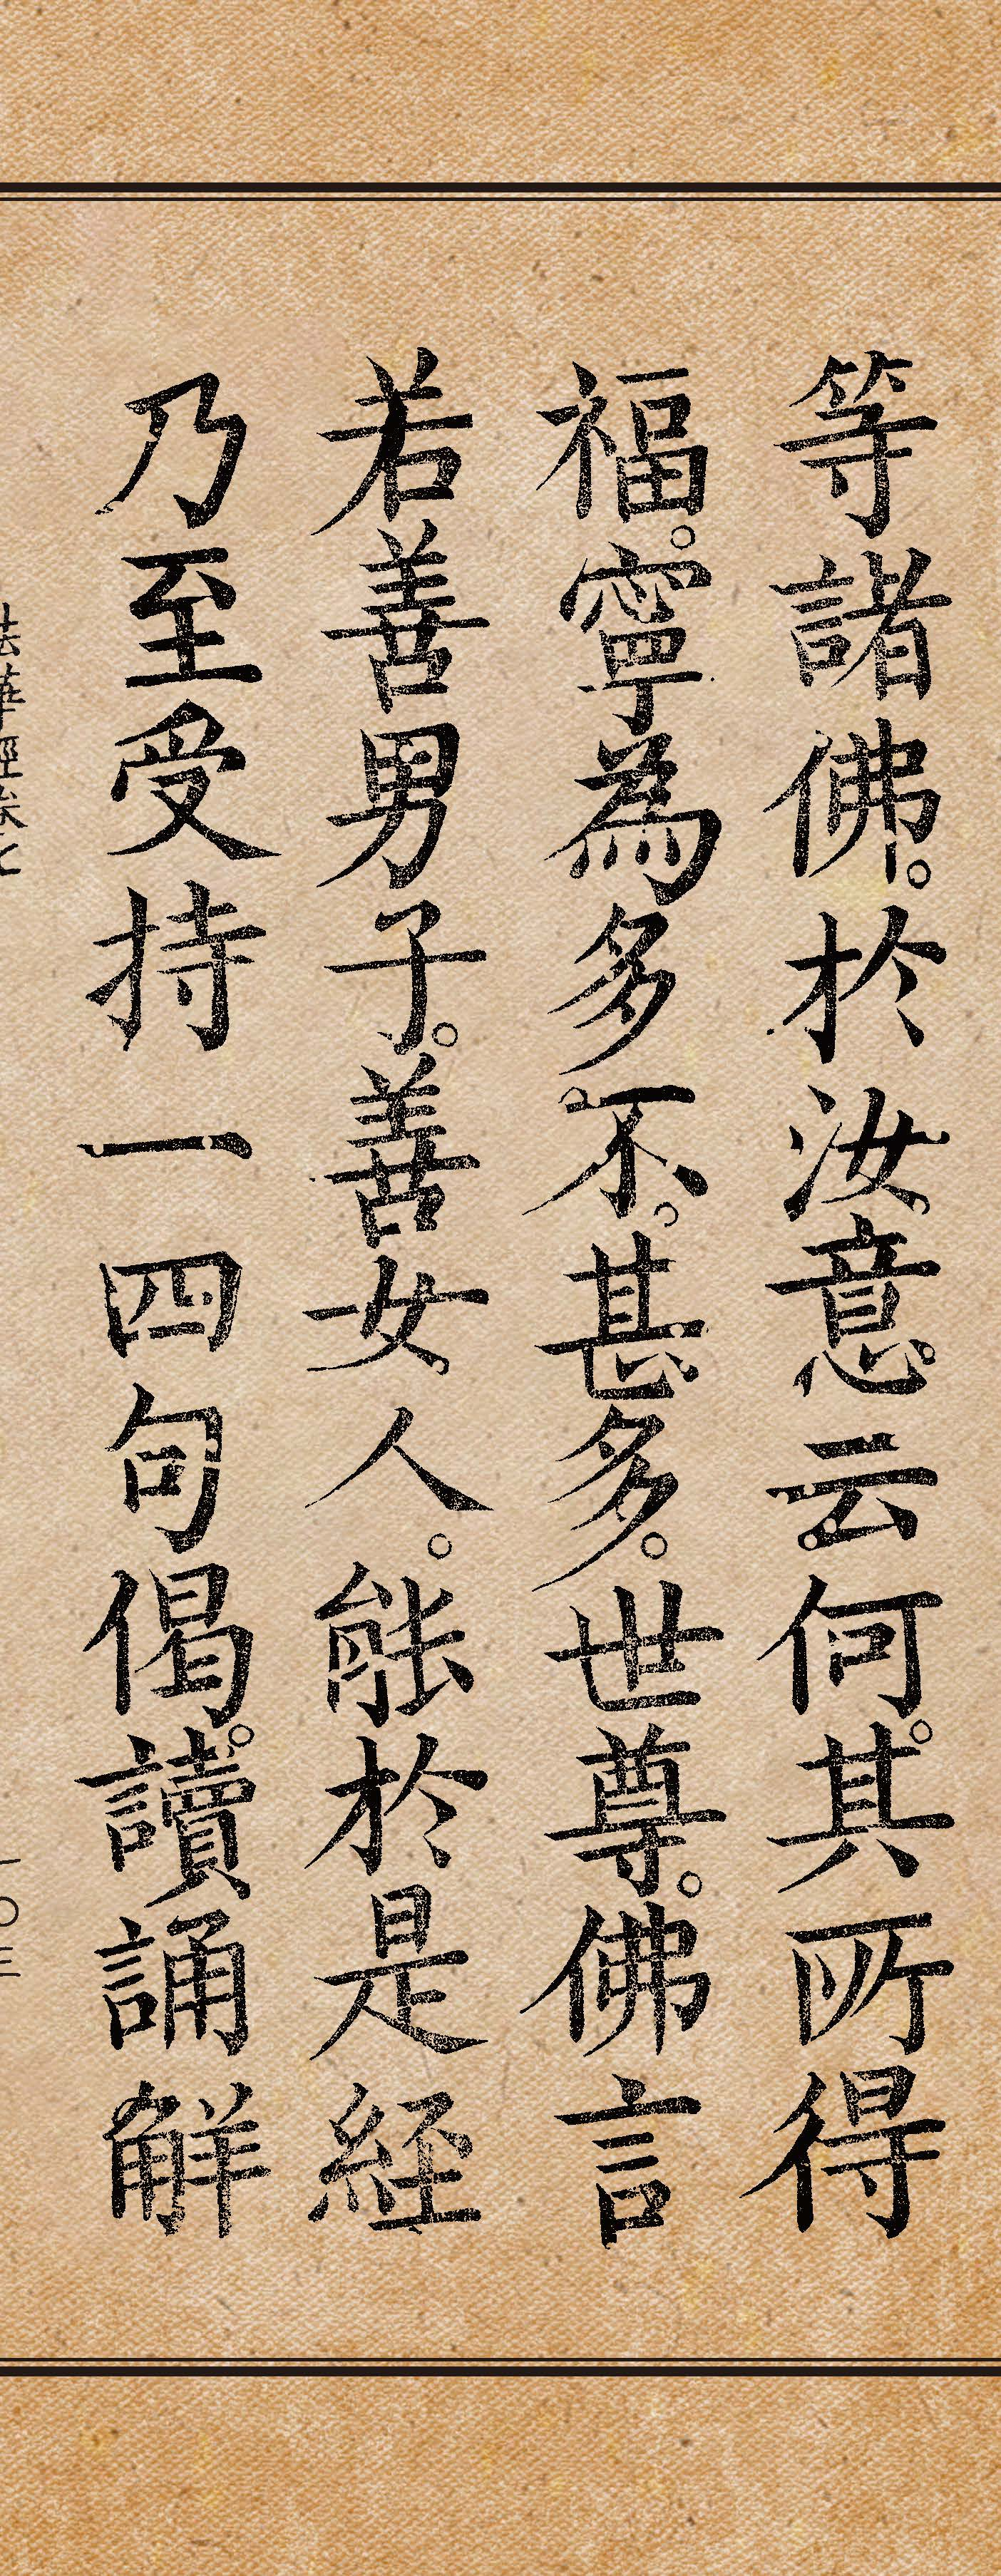 等諸佛。於汝意。云何。其所得
福。寧為多不。甚多。世尊。佛言
若善男子。善女人。能於是經
乃至受持一四句偈。讀誦解
法華經卷七
一〇三